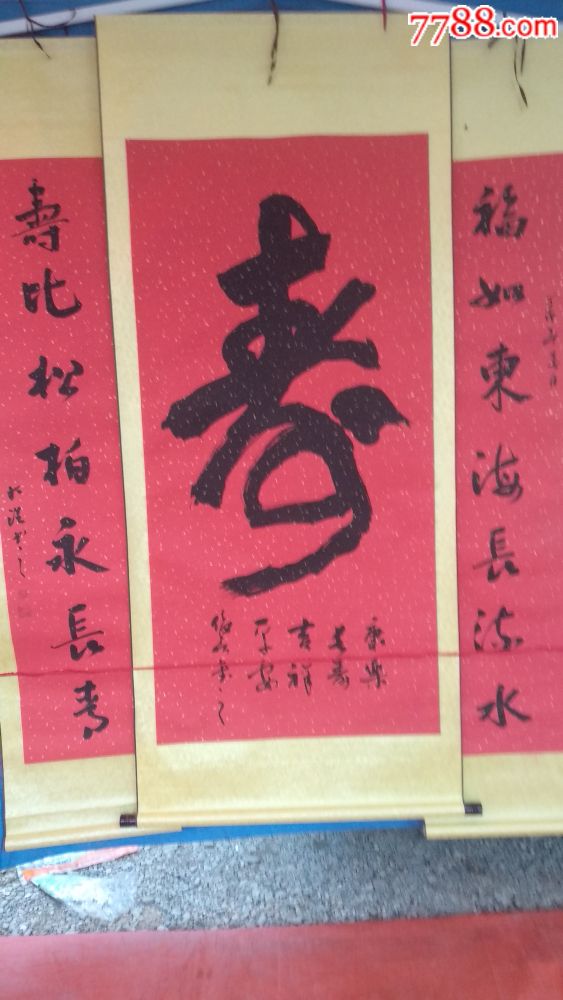 7788.com
福如東海長流水
壽
康樂
長壽
吉祥
平安
壽比松柏永長青